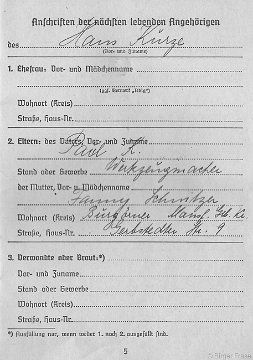 Anschriften der nächsten lebenden Angehörigen
des Hans Kurze
(Vor- und Zuname)
1. Ehefrau: Vor- und Mädchenname
(ggf. Vermerk „ledig“)
Wohnort (Kreis)
Straße, Haus-Nr.
2. Eltern: des Vaters, Vor- und Zuname
Paul K.
Stand oder Gewerbe Werkzeugmacher
der Mutter, Vor- u. Mädchenname
Fanny
Wohnort (Kreis) Burgörner Mansf. Geb. Kr.
Straße, Haus-Nr. Gerbstedter Str. 9
3. Verwandte oder Braut:*)
Vor- und Zuname
Stand oder Gewerbe
Wohnort (Kreis)
Straße, Haus-Nr.
*) Ausfüllung nur, wenn weder 1. noch 2. ausgefüllt sind.
5